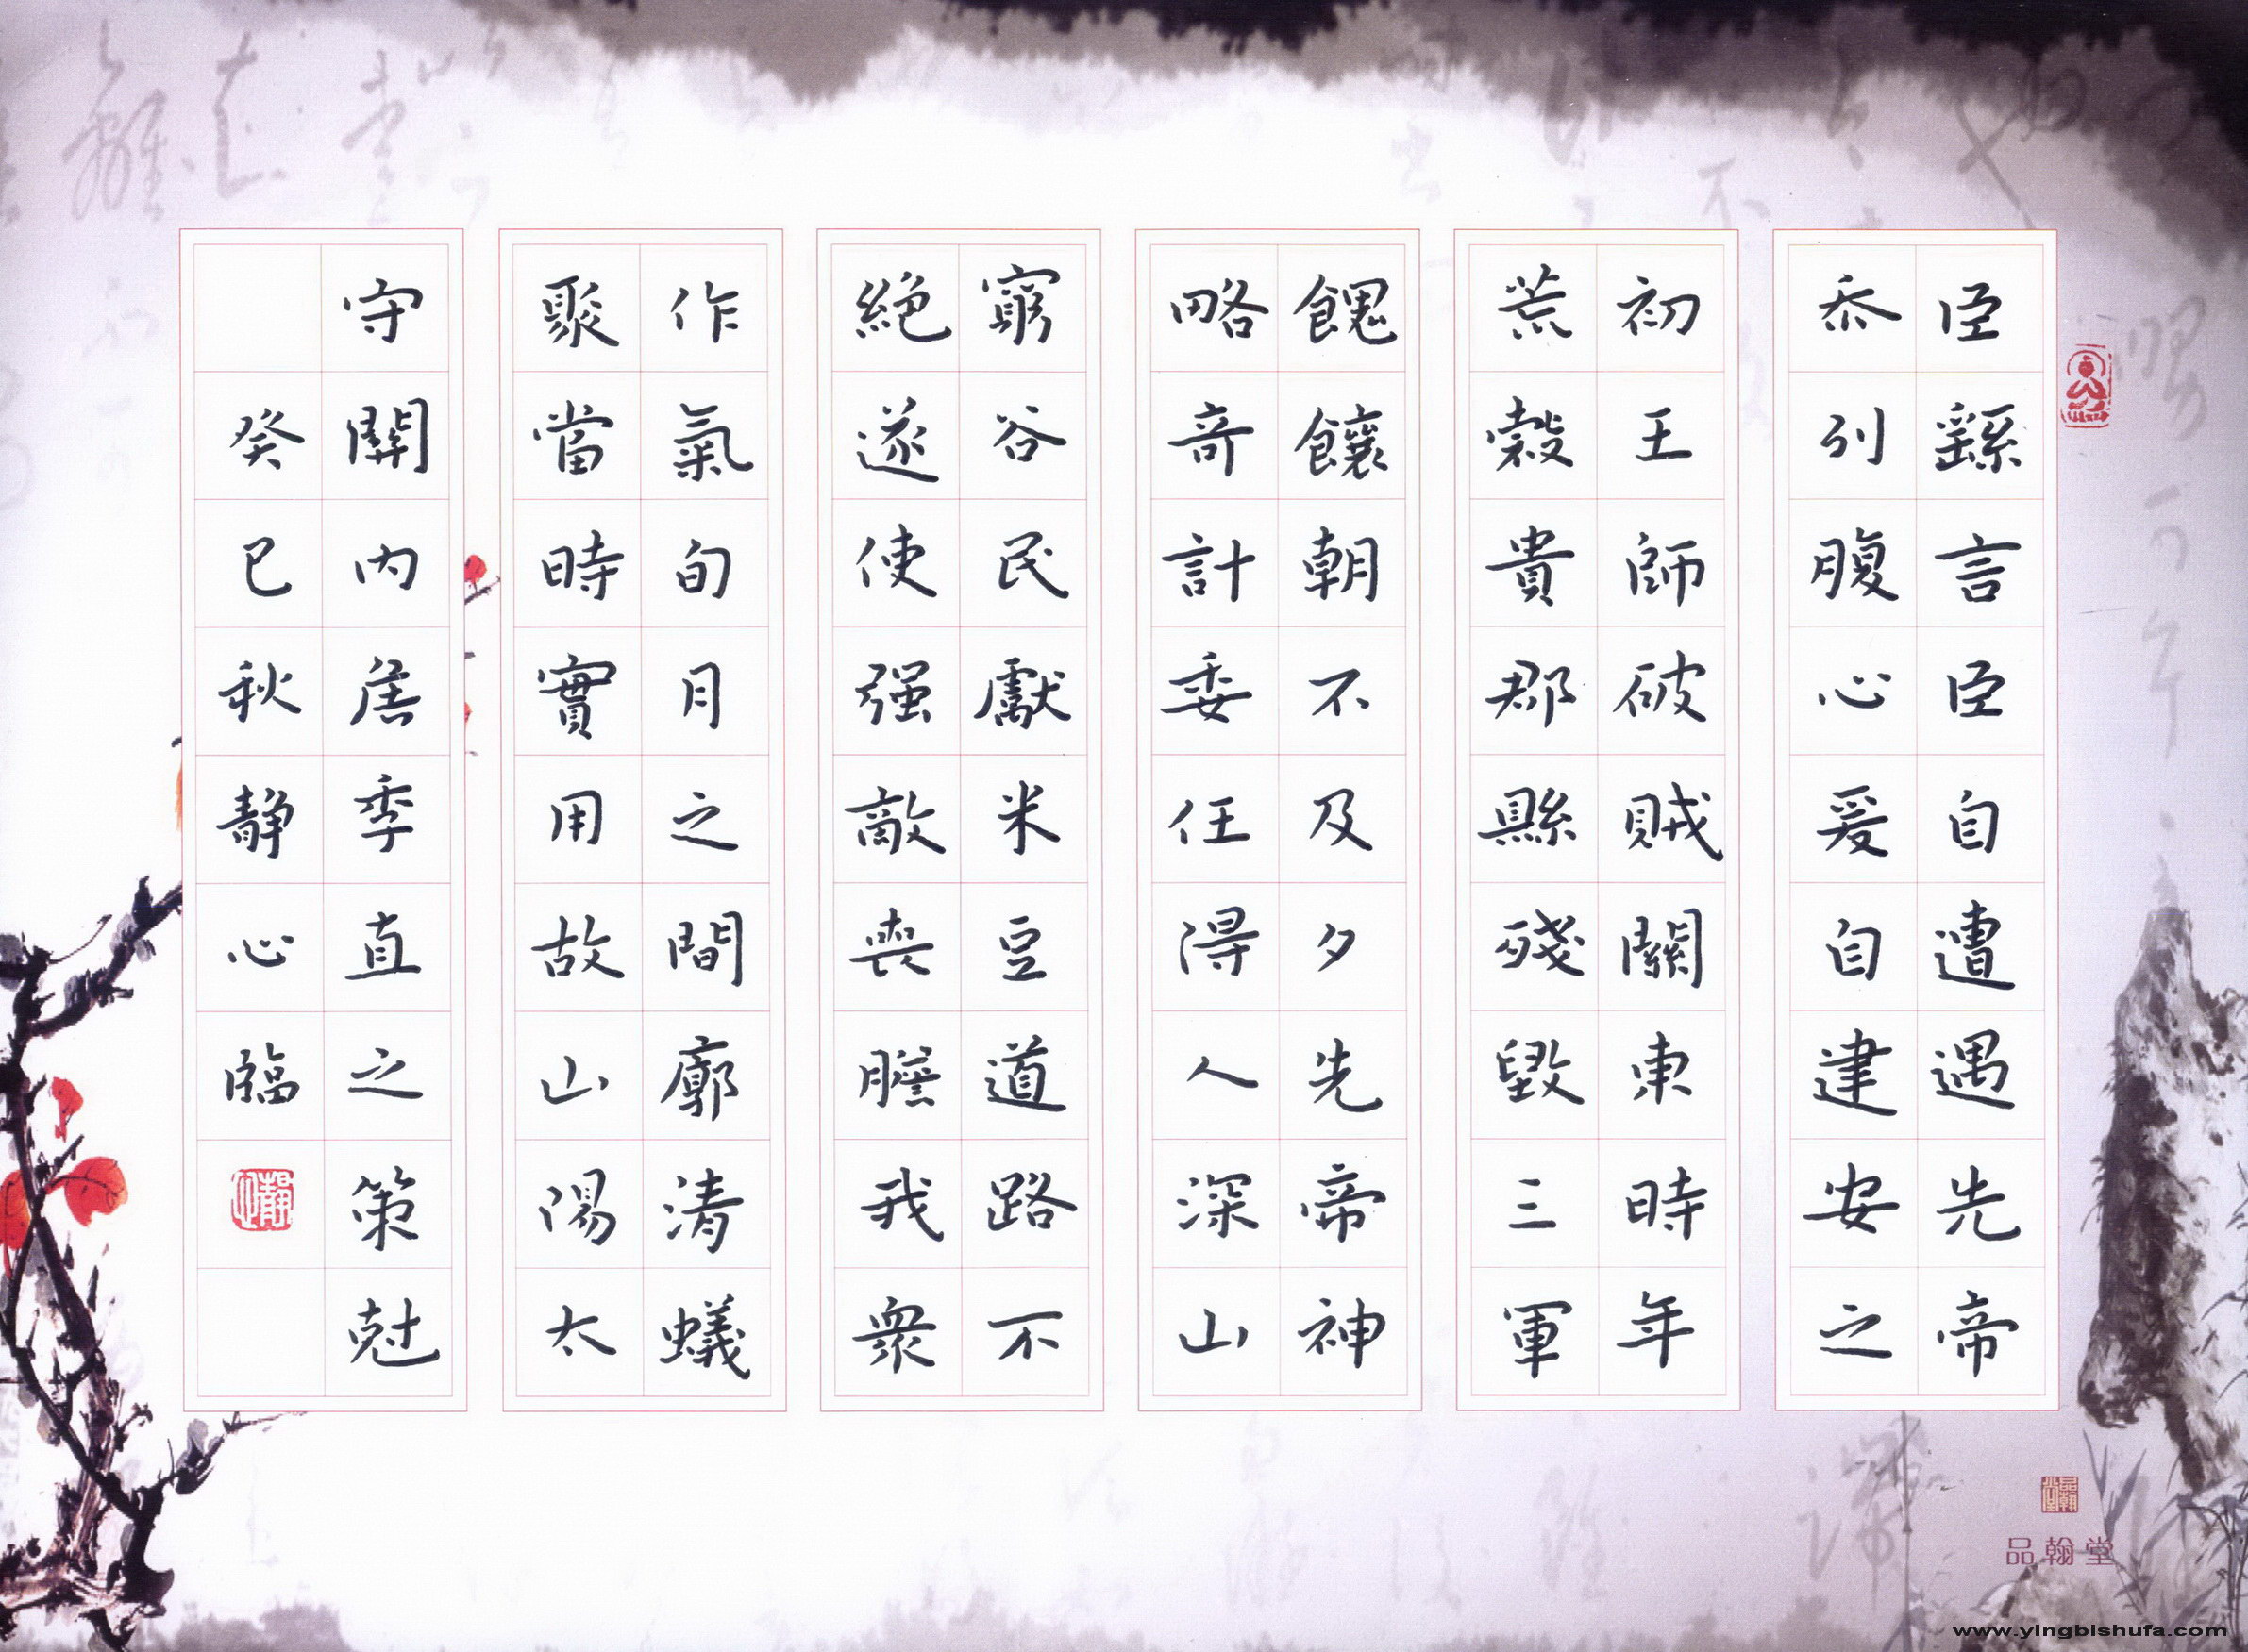 臣繇言臣自遭遇先帝
忝列腹心爰自建安之
初王師破賊關東時年
荒穀貴郡縣殘毀三軍
餽饟朝不及夕先帝神
略奇計委任得人深山
窮谷民獻米豆道路不
絶遂使强敵喪膽我衆
作氣旬月之間廓清蟻
聚當時實用故山陽太
守關内侯季直之策尅
癸巳秋靜心臨
品翰堂
www.yingbishufa.com